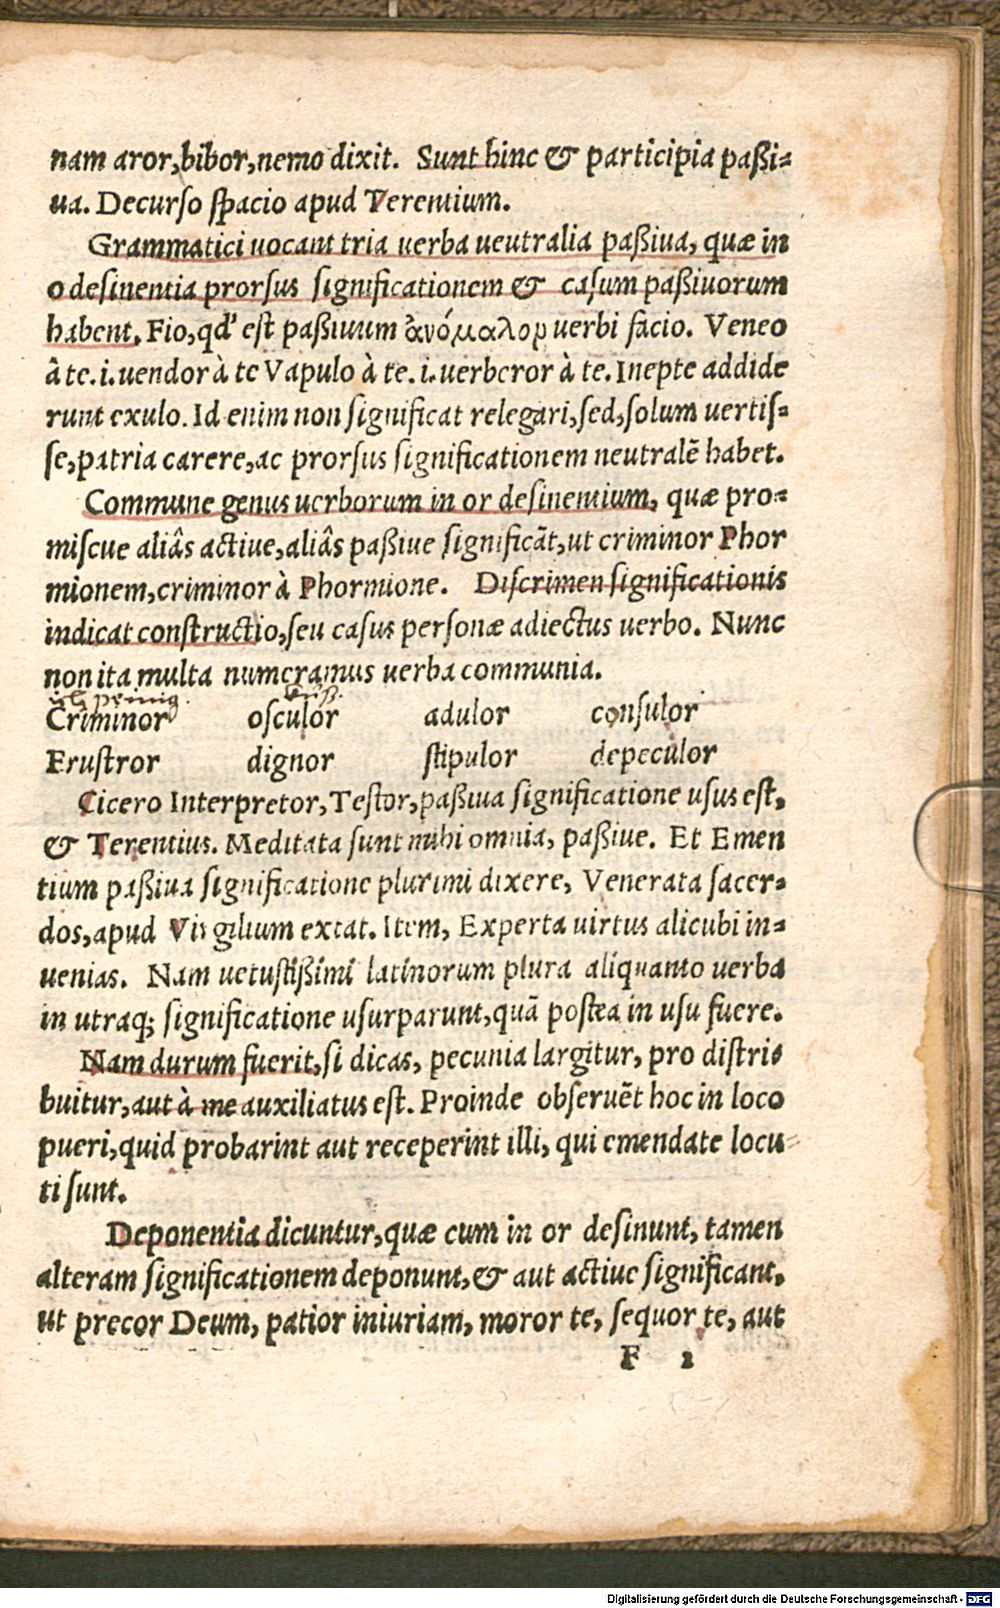 nam aror,bibor,nemo dixit. Sunt hinc & participia paßi-
ua. Decurso spacio apud Terentium.
Grammatici uocant tria uerba neutralia paßiua, quæ in
o desinentia prorsus significationem & casum paßiuorum
habent. Fio, qd' est paßiuum ἀνόμαλον uerbi facio. Veneo
â te. i. uendor à te Vapulo à te. i. uerberor à te. Inepte addide
runt exulo. Id enim non significat relegari, sed, solum uertis-
se, patria carere, ac prorsus significationem neutralē habet.
Commune genus uerborum in or desinentium, quæ pro-
miscue aliâs actiue, aliâs paßiue significāt, ut criminor Phor
mionem, criminor à Phormione. Discrimen significationis
indicat constructio, seu casus personæ adiectus uerbo. Nunc
non ita multa numeramus uerba communia.
Criminor osculor adulor consulor
Frustror dignor stipulor depeculor
Cicero Interpretor, Testor, paßiua significatione usus est,
& Terentius. Meditata sunt mihi omnia, paßiue. Et Emen
tium paßiua significatione plurimi dixere, Venerata sacer-
dos, apud Virgilium extat. Item, Experta uirtus alicubi in-
uenias. Nam uetustißimi latinorum plura aliquanto uerba
in utraq; significatione usurparunt, quā postea in usu fuere.
Nam durum fuerit, si dicas, pecunia largitur, pro distri-
buitur, aut à me auxiliatus est. Proinde obseruēt hoc in loco
pueri, quid probarint aut receperint illi, qui emendate locu-
ti sunt.
Deponentia dicuntur, quæ cum in or desinunt, tamen
alteram significationem deponunt, & aut actiue significant,
ut precor Deum, patior iniuriam, moror te, sequor te, aut
F 2
Digitalisierung gefördert durch die Deutsche Forschungsgemeinschaft - DFG